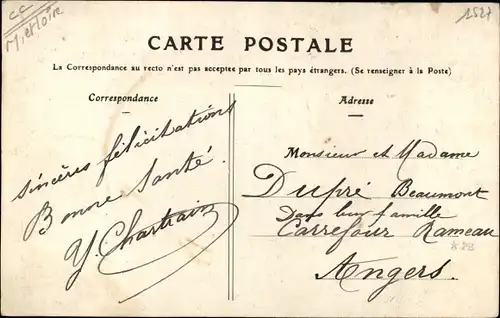 CC
M-et-Loire
1527
CARTE POSTALE
La Correspondance au recto n'est pas acceptee par tous les pays étrangers. (Se renseigner à la Poste)
Correspondance
Adresse
Sincères félicitations
Bonne Santé.
Y. Chartrain
Monsieur et Madame
Dupré Beaumont
Dans leur famille
Carrefour Rameau
Angers.